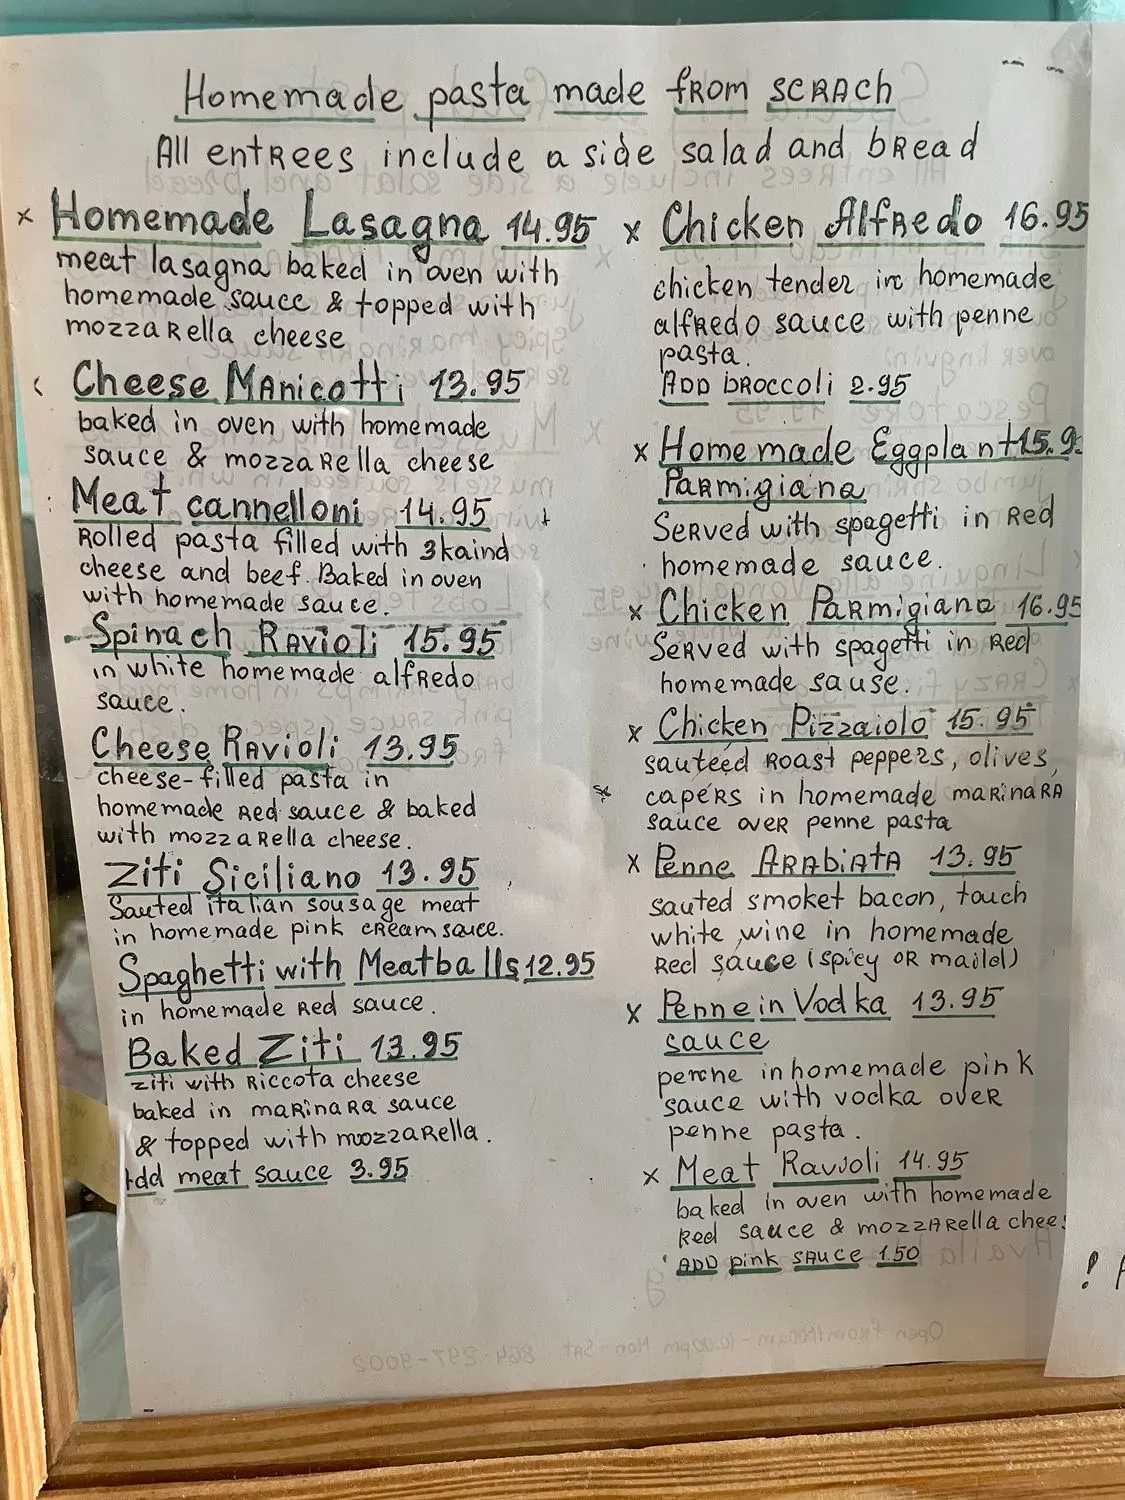 Homemade pasta made from scrach
All entrees include a side salad and bread
x Homemade Lasagna 14.95
meat lasagna baked in oven with
homemade sauce & topped with
mozzarella cheese
Cheese Manicotti 13.95
baked in oven with homemade
sauce & mozzarella cheese
Meat cannelloni 14.95
Rolled pasta filled with 3kaind
cheese and beef. Baked in oven
with homemade sauce.
Spinach Ravioli 15.95
in white homemade alfredo
sauce.
Cheese Ravioli 13.95
cheese-filled pasta in
homemade Red sauce & baked
with mozzarella cheese.
Ziti Siciliano 13.95
Sauted italian sousage meat
in homemade pink cream sauce.
Spaghetti with Meatballs 12.95
in homemade Red sauce.
Baked Ziti 13.95
ziti with Riccota cheese
baked in marinara sauce
& topped with mozzarella.
Add meat sauce 3.95
x Chicken Alfredo 16.95
chicken tender in homemade
alfredo sauce with penne
pasta.
ADD broccoli 2.95
x Homemade Eggplant 15.9
Parmigiana
Served with spagetti in Red
homemade sauce.
x Chicken Parmigiana 16.95
Served with spagetti in Red
homemade sause.
x Chicken Pizzaiolo 15.95
sauteed Roast peppers, olives,
capers in homemade marinara
sauce over penne pasta
x Penne Arabiata 13.95
sauted smoket bacon, touch
white wine in homemade
Red sauce (spicy or maild)
x Penne in Vodka 13.95
sauce
penne in homemade pink
sauce with vodka over
penne pasta.
x Meat Ravioli 14.95
baked in oven with homemade
Red sauce & mozzarella chees
ADD pink sauce 1.50